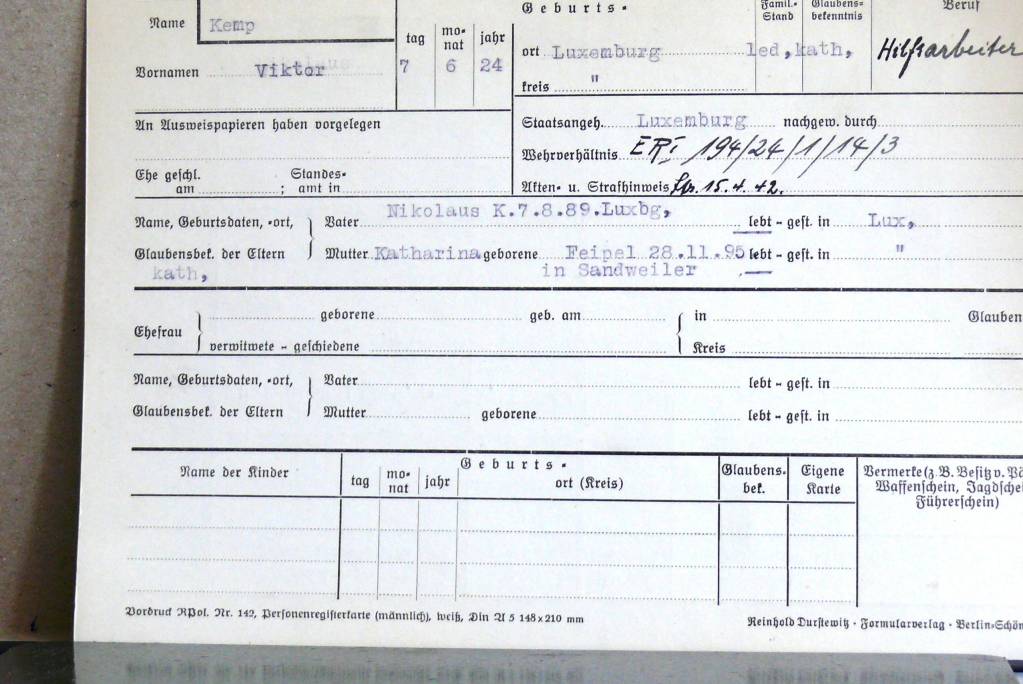 Name Kemp
tag monat jahr
Geburts-
Famil.- Stand
Glaubens- bekenntnis
Beruf
Vornamen Viktor 7 6 24
ort Luxemburg led, kath, Hilfsarbeiter
kreis "
An Ausweispapieren haben vorgelegen
Staatsangeh. Luxemburg nachgew. durch
Wehrverhältnis 194/24/1/14/3
Ehe geschl. am ; Standes- amt in
Akten- u. Strafhinweis 15.4.42.
Name, Geburtsdaten, -ort, Vater Nikolaus K.7.8.89.Luxbg, lebt - gest. in Lux,
Glaubensbek. der Eltern Mutter Katharina geborene Feipel 28.11.95 lebt - gest. in "
kath, in Sandweiler
Ehefrau geborene geb. am in Glauben
verwitwete - geschiedene Kreis
Name, Geburtsdaten, -ort, Vater lebt - gest. in
Glaubensbek. der Eltern Mutter geborene lebt - gest. in
Name der Kinder
Geburts-
tag monat jahr ort (Kreis)
Glaubens- bek.
Eigene Karte
Vermerke (z. B. Besitz v. Pä
Waffenschein, Jagdschei
Führerschein)
Vordruck RPol. Nr. 142, Personenregisterkarte (männlich), weiß, Din A 5 148x210 mm
Reinhold Durstewitz · Formularverlag · Berlin-Schön